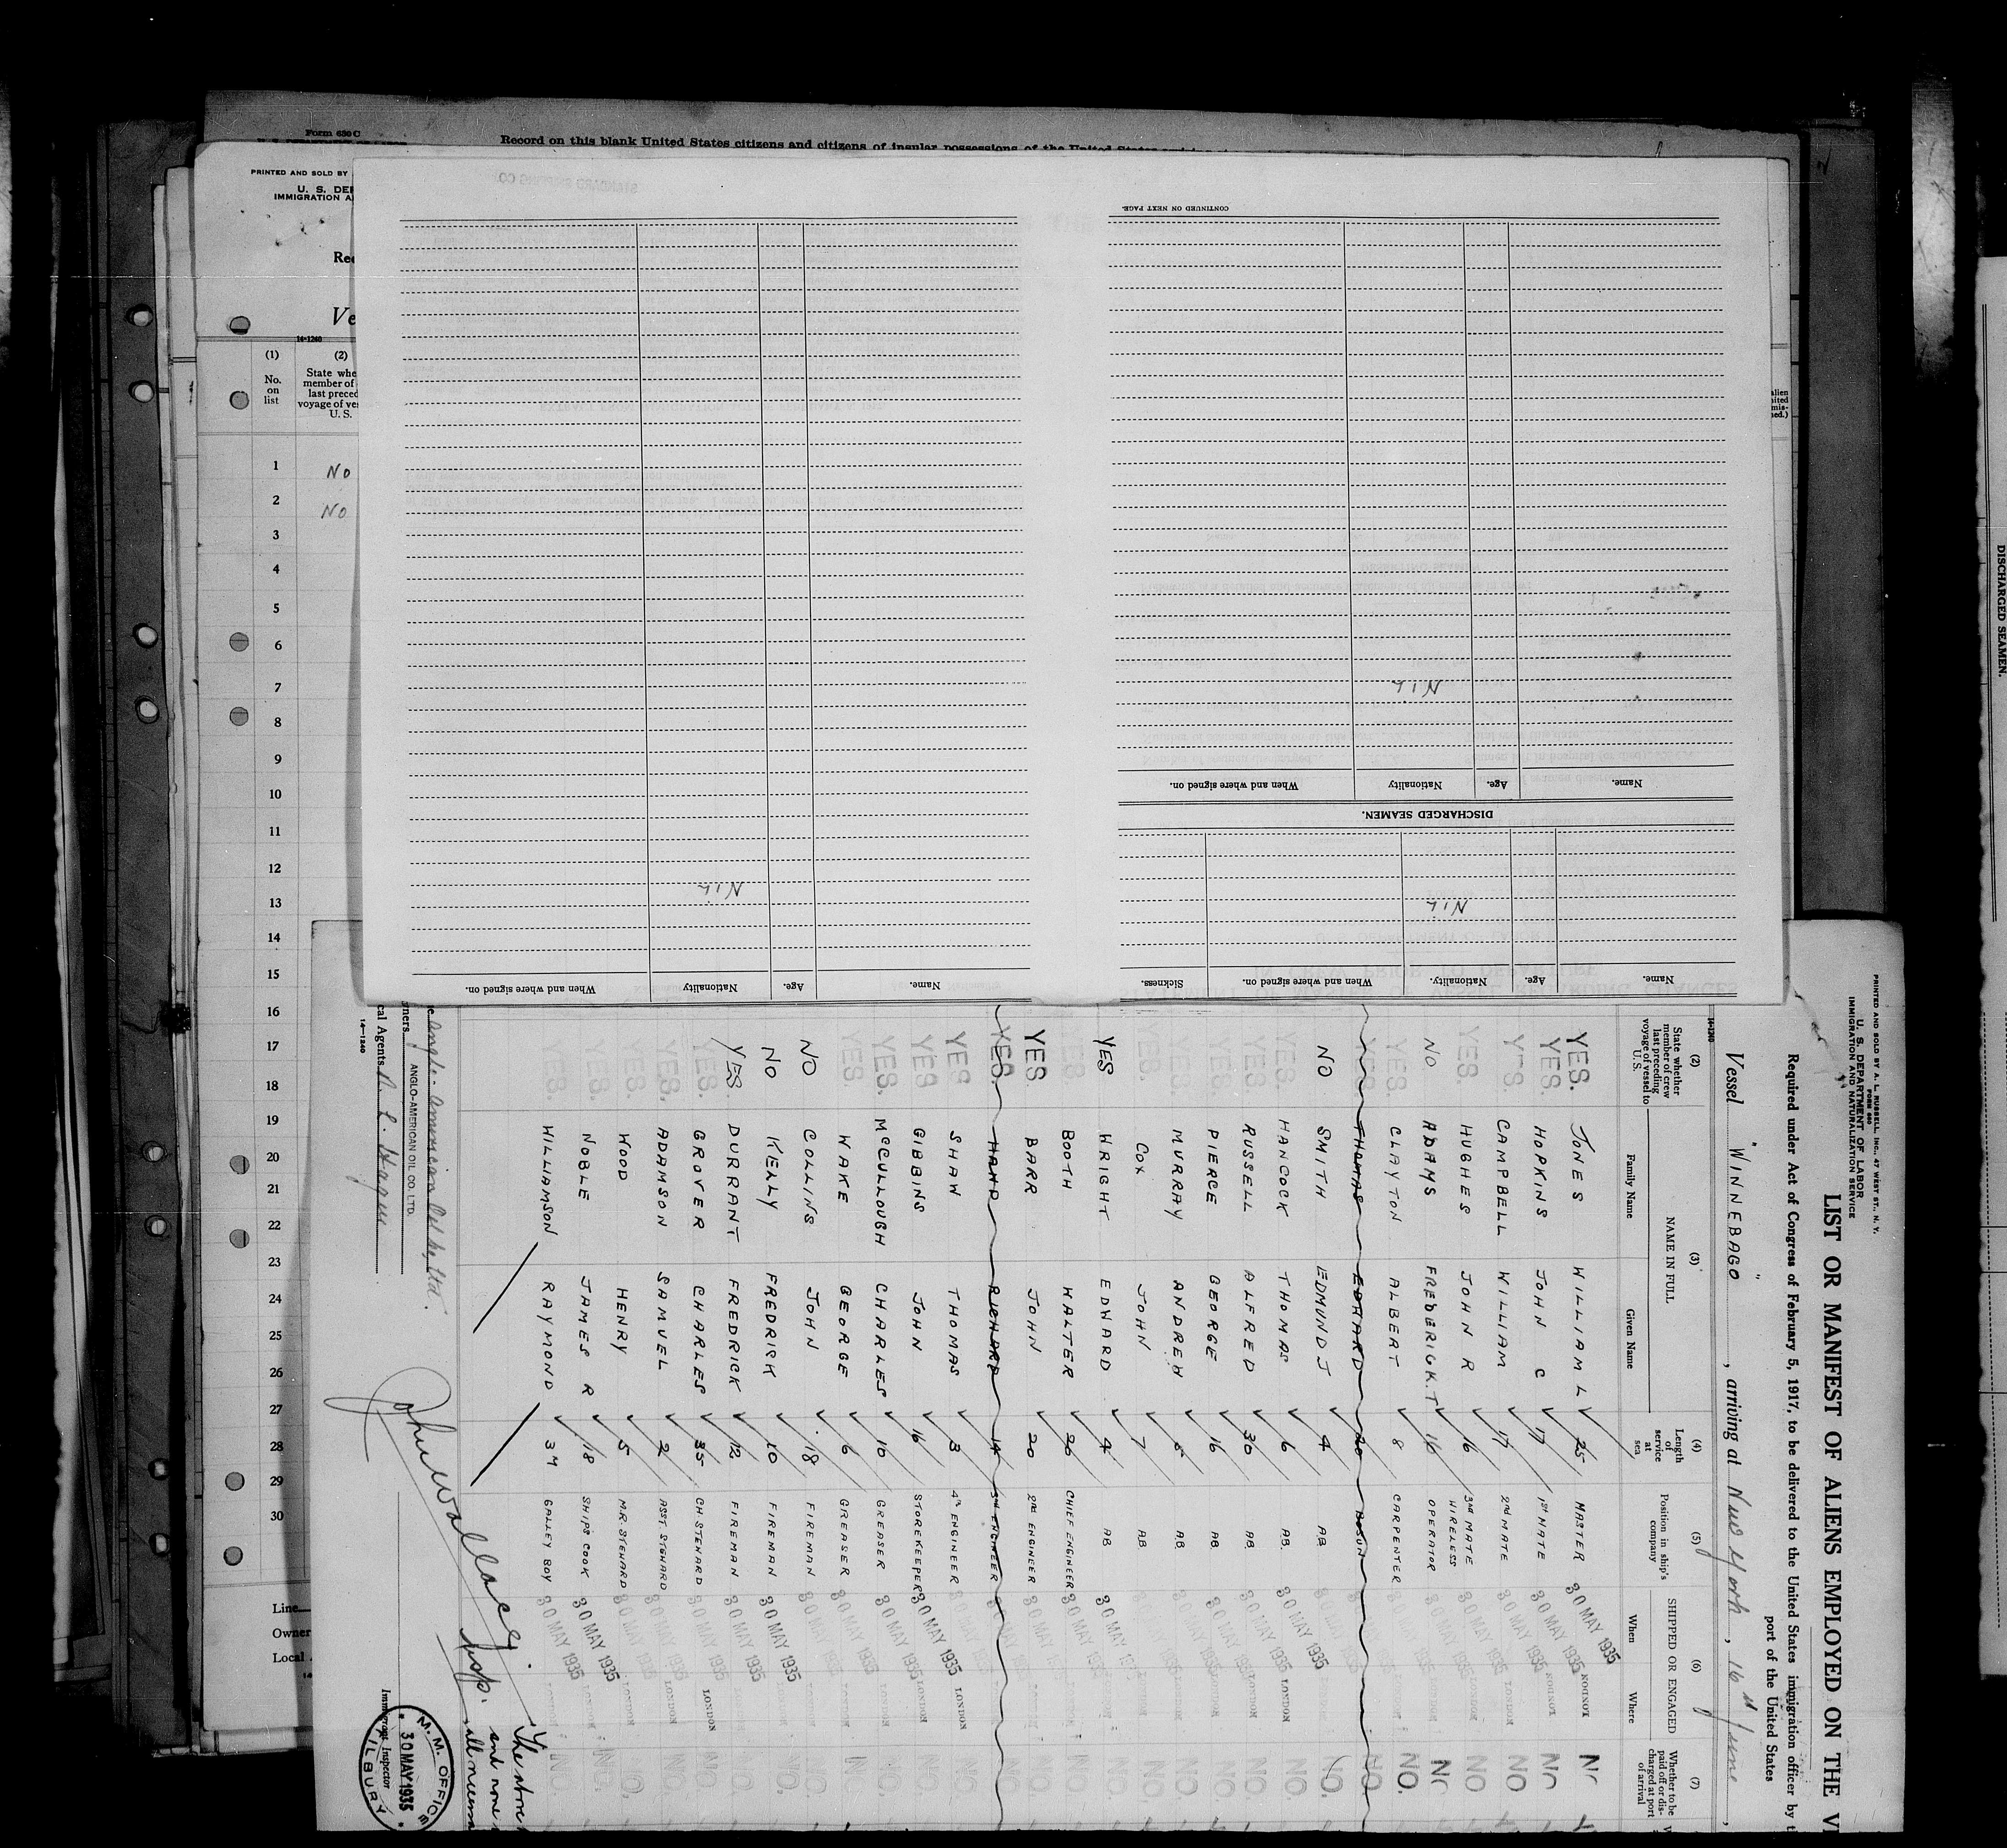 Form 680 C
Record on this blank United States citizens and citizens of insular possessions of the United States
PRINTED AND SOLD BY
U. S. DEP
IMMIGRATION A
Rec
Ve
14-1240
(1)
No.
on
list
(2)
State whe
member of
last preced
voyage of ves
U. S.
1 No
2 No
3
4
5
6
7
8
9
10
11
12
13
14
15
16
17
18
19
20
21
22
23
24
25
26
27
28
29
30
Line
Owner
Local
STANDARD SHIPPING CO.
CONTINUED ON NEXT PAGE.
Name. Age. Nationality. When and where signed on. Sickness.
Nil
DISCHARGED SEAMEN.
Name. Age. Nationality When and where signed on.
Nil
Name. Age. Nationality When and where signed on.
Nil
PRINTED AND SOLD BY A. L. RUSSELL, INC., 47 WEST ST., N. Y.
FORM 680
U. S. DEPARTMENT OF LABOR
IMMIGRATION AND NATURALIZATION SERVICE
LIST OR MANIFEST OF ALIENS EMPLOYED ON THE V
Required under Act of Congress of February 5, 1917, to be delivered to the United States immigration officer by t
port of the United States
Vessel "WINNEBAGO", arriving at New York, 16th June
14-1240
(2) (3) (4) (5) (6) (7)
State whether member of crew last preceding voyage of vessel to U. S.
NAME IN FULL
Family Name Given Name
Length of service at sea
Position in ship's company
SHIPPED OR ENGAGED
When Where
Whether to be paid off or discharged at port of arrival
YES. JONES WILLIAM L 25 MASTER 30 MAY 1935 LONDON NO
YES. HOPKINS JOHN C 17 1ST MATE 30 MAY 1935 LONDON NO
YES. CAMPBELL WILLIAM 17 2ND MATE 30 MAY 1935 LONDON NO
YES. HUGHES JOHN R 16 3RD MATE 30 MAY 1935 LONDON NO
NO ADAMS FREDERICK.T 16 WIRELESS OPERATOR 30 MAY 1935 LONDON NO
YES. CLAYTON ALBERT 8 CARPENTER NO.
YES. THOMAS EDWARD 20 BOSUN NO
NO SMITH EDMUND J 4 AB 30 MAY 1935 NO
YES. HANCOCK THOMAS 6 AB. 30 MAY 1935 LONDON NO.
YES. RUSSELL ALFRED 30 AB. 30 MAY 1935 LONDON NO.
YES. PIERCE GEORGE 16 AB. 30 MAY 1935 LONDON NO.
YES. MURRAY ANDREW AB. 30 MAY 1935 NO.
COX JOHN 7 AB. NO.
YES WRIGHT EDWARD 4 AB 30 MAY NO.
YES. BOOTH WALTER 26 CHIEF ENGINEER 30 MAY 1935 NO.
YES BARR JOHN 20 2ND ENGINEER 30 MAY 1935 NO.
YES. HAND RICHARD 14 3RD ENGINEER NO.
YES SHAW THOMAS 3 4TH ENGINEER 30 MAY 1935 LONDON NO.
YES. GIBBINS JOHN 16 STOREKEEPER 30 MAY 1935 LONDON NO.
YES. McCULLOUGH CHARLES 10 GREASER 30 MAY 1935 LONDON NO
YES. WAKE GEORGE 6 GREASER 30 MAY 1935 LONDON NO
NO COLLINS JOHN 18 FIREMAN NO.
NO KELLY FREDRICK 10 FIREMAN 30 MAY 1935 NO.
YES. DURRANT FREDRICK 12 FIREMAN 30 MAY 1935 NO.
YES. GROVER CHARLES 35 CH. STEWARD 30 MAY 1935 LONDON NO.
YES. ADAMSON SAMUEL 2 ASST STEWARD 30 MAY 1935 LONDON NO.
YES. WOOD HENRY 5 M.R. STEWARD 30 MAY 1935 LONDON NO.
YES. NOBLE JAMES R 18 SHIPS COOK 30 MAY 1935 LONDON NO.
YES. WILLIAMSON RAYMOND GALLEY BOY 30 MAY 1935 LONDON NO.
Anglo-American Oil Co., Ltd.
ners ANGLO-AMERICAN OIL CO. LTD.
cal Agents
14-1240
John Wallace
Insp.
Immigrant Inspector
M. M. OFFICE
30 MAY 1935
TILBURY
and none
DISCHARGED SEAMEN.